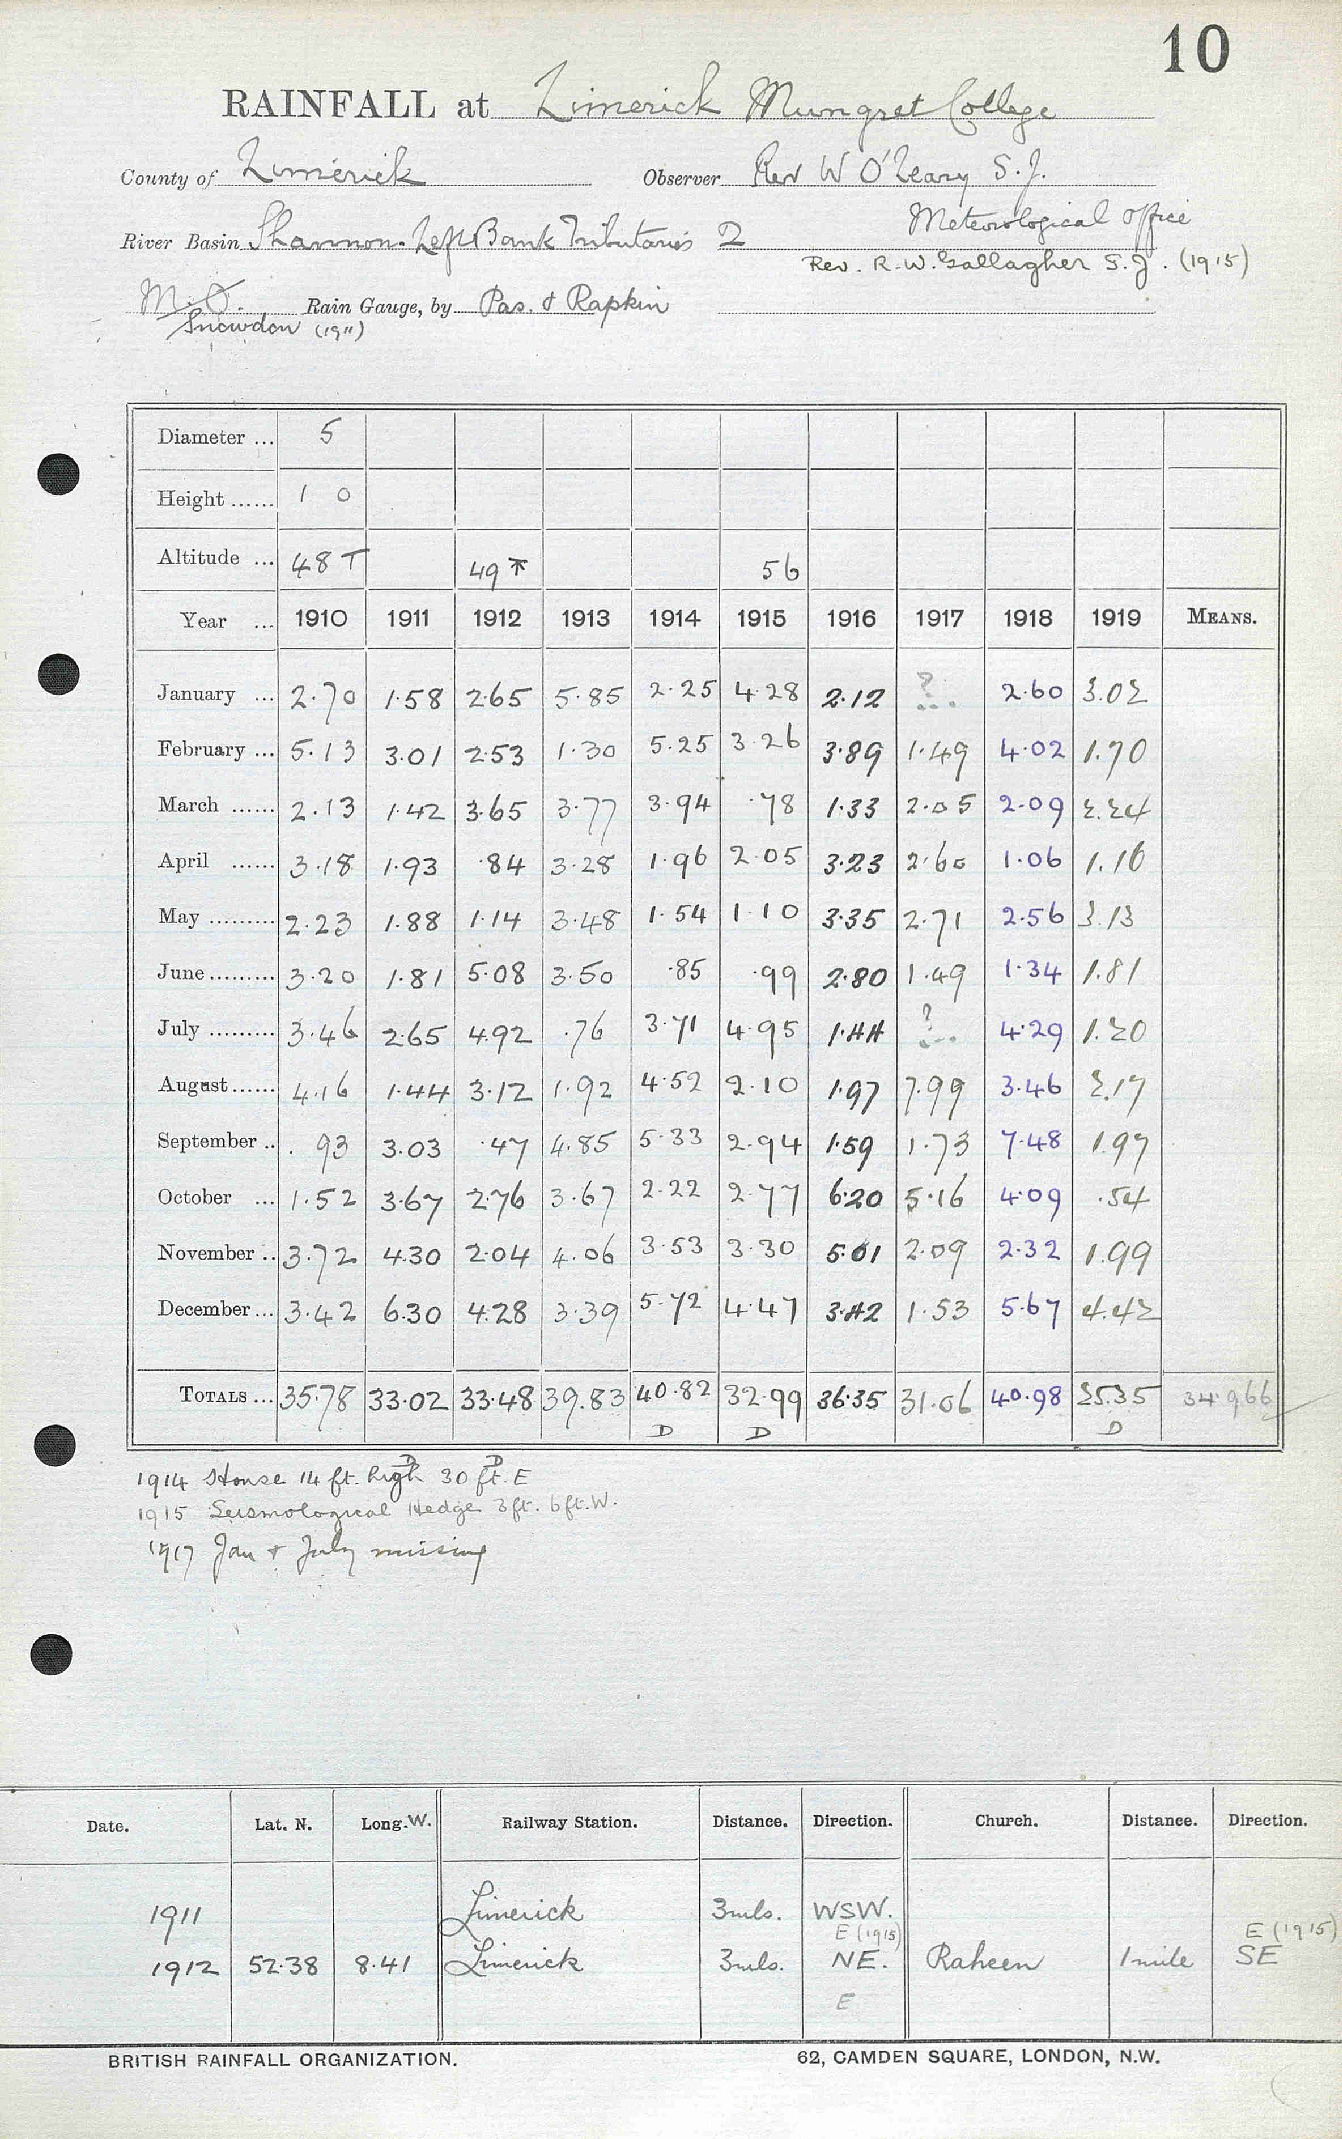 10
RAINFALL at Limerick Mungret College
County of Limerick Observer Rev W O'Leary S.J.
Meteorological Office
River Basin Shannon. Left Bank Tributaries 2
Rev. R.W. Gallagher S.J. (1915)
M.O. Rain Gauge, by Pas. & Rapkin
Snowdon (1911)
Diameter ... 5
Height ...... 1 0
Altitude ... 48 T 49 T 56
Year ... 1910 1911 1912 1913 1914 1915 1916 1917 1918 1919 MEANS.
January ... 2.70 1.58 2.65 5.85 2.25 4.28 2.12 ? ... 2.60 3.02
February ... 5.13 3.01 2.53 1.30 5.25 3.26 3.89 1.49 4.02 1.70
March ...... 2.13 1.42 3.65 3.77 3.94 .78 1.33 2.05 2.09 2.24
April ...... 3.18 1.93 .84 3.28 1.96 2.05 3.23 2.60 1.06 1.16
May ......... 2.23 1.88 1.14 3.48 1.54 1.10 3.35 2.71 2.56 3.13
June ......... 3.20 1.81 5.08 3.50 .85 .99 2.80 1.49 1.34 1.81
July ......... 3.46 2.65 4.92 .76 3.71 4.95 1.44 ? ... 4.29 1.20
August ...... 4.16 1.44 3.12 1.92 4.52 2.10 1.97 7.99 3.46 2.17
September .. .93 3.03 .47 4.85 5.33 2.94 1.59 1.73 7.48 1.97
October ... 1.52 3.67 2.76 3.67 2.22 2.77 6.20 5.16 4.09 .54
November .. 3.72 4.30 2.04 4.06 3.53 3.30 5.01 2.09 2.32 1.99
December ... 3.42 6.30 4.28 3.39 5.72 4.47 3.42 1.53 5.67 4.42
TOTALS ... 35.78 33.02 33.48 39.83 40.82 32.99 36.35 31.06 40.98 25.35 34.966
D D D
1914 House 14 ft. high 30 ft. E
1915 Seismological Hedge 3ft. 6ft. W.
1917 Jan & July missing
Date. Lat. N. Long. W. Railway Station. Distance. Direction. Church. Distance. Direction.
1911 Limerick 3mls. WSW.
E (1915) E (1915)
1912 52.38 8.41 Limerick 3mls. NE. Raheen 1 mile SE
E
BRITISH RAINFALL ORGANIZATION. 62, CAMDEN SQUARE, LONDON, N.W.